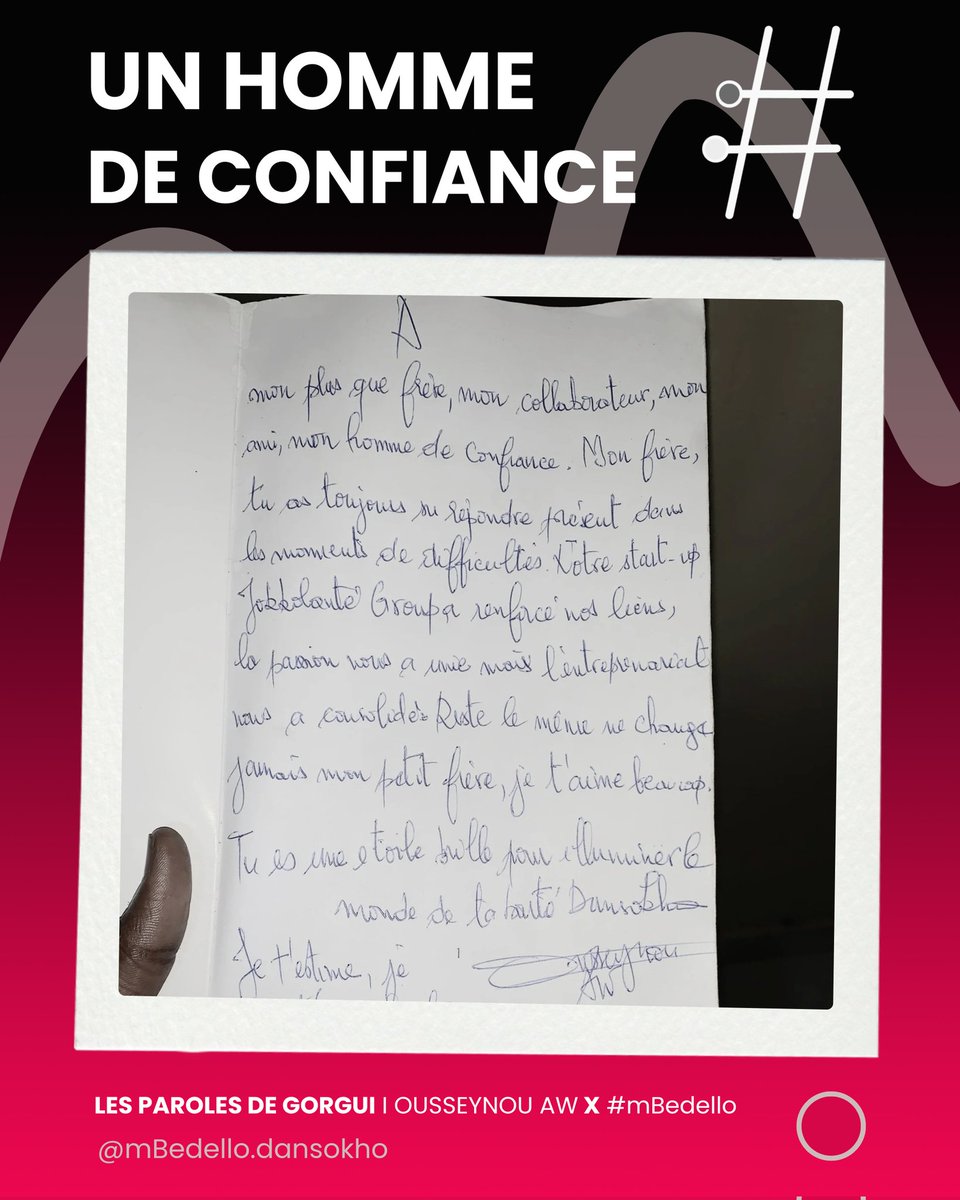 UN HOMME
DE CONFIANCE
A
mon plus que frère, mon collaborateur, mon
ami, mon homme de confiance. Mon frère,
tu as toujours su répondre présent dans
les moments de difficultés. Notre start-up
Jokkolanté Group a renforcé nos liens,
la passion nous a unie mais l'entreprenariat
nous a consolidé. Reste le même ne change
jamais mon petit frère, je t'aime beaucoup.
Tu es une etoile brille pour illuminer le
monde de ta bonté Dansokho
Je t'estime, je
Ousseynou
AW
LES PAROLES DE GORGUI I OUSSEYNOU AW X #mBedello
@mBedello.dansokho